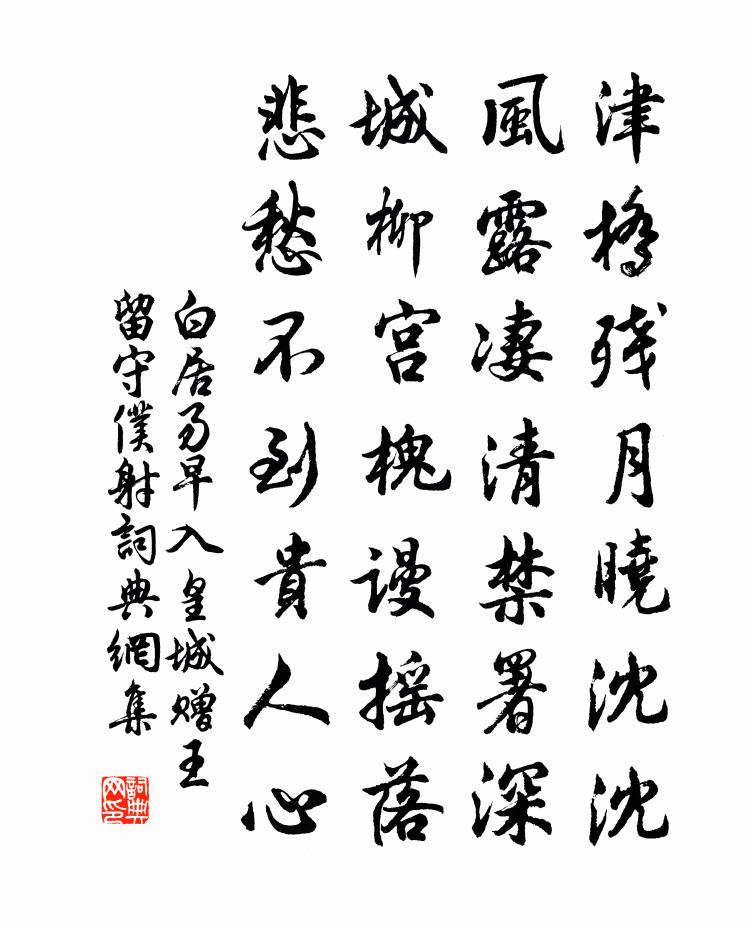 津橋殘月曉沈沈
風露凄清禁署深
城柳宮槐謾摇落
悲愁不到貴人心
白居易早入皇城赠王
留守僕射詞典網集
詞典
网印